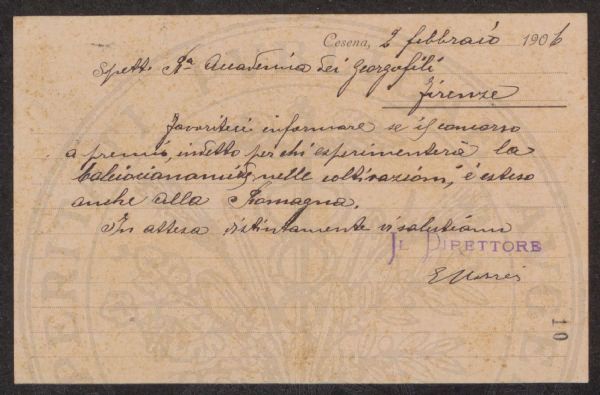 Cesena, 2 febbraio 1906
Spett. Ra Accademia dei Georgofili
Firenze
Favoriteci informare se il concorso
a premi, indetto per chi esperimenterà la
Calciocianamide nelle coltivazioni, è esteso
anche alla Romagna.
In attesa distintamente vi salutiamo
IL DIRETTORE
10